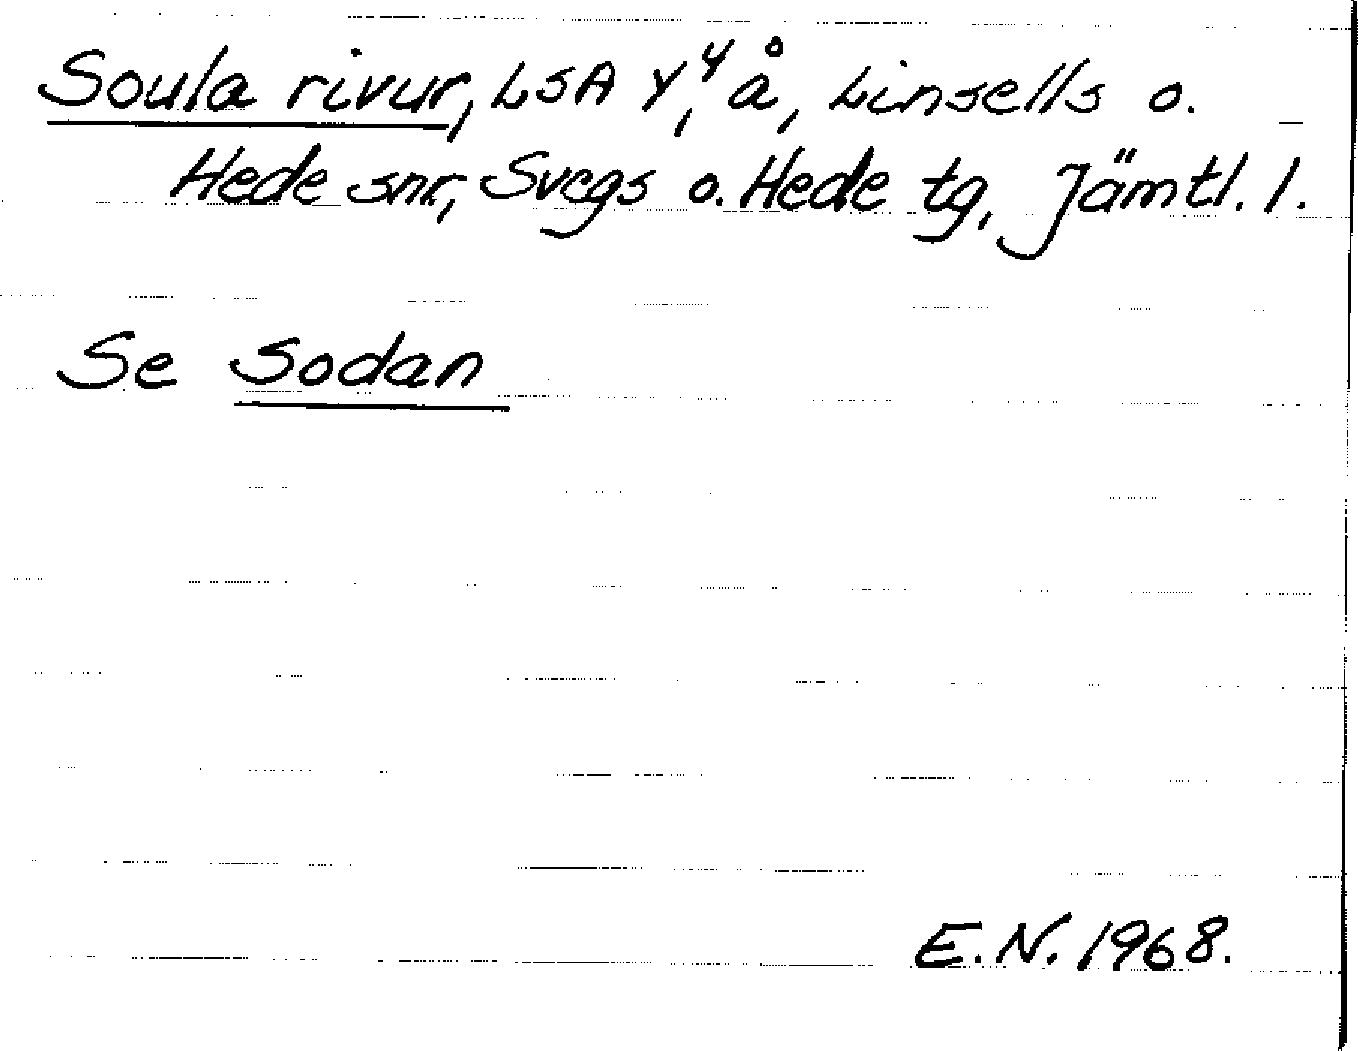 Soula rivur, LSA Y,⁴ å, Linsells o. –
Hede snr, Svegs o. Hede tg, Jämtl. l.
Se Sodan
E.N. 1968.